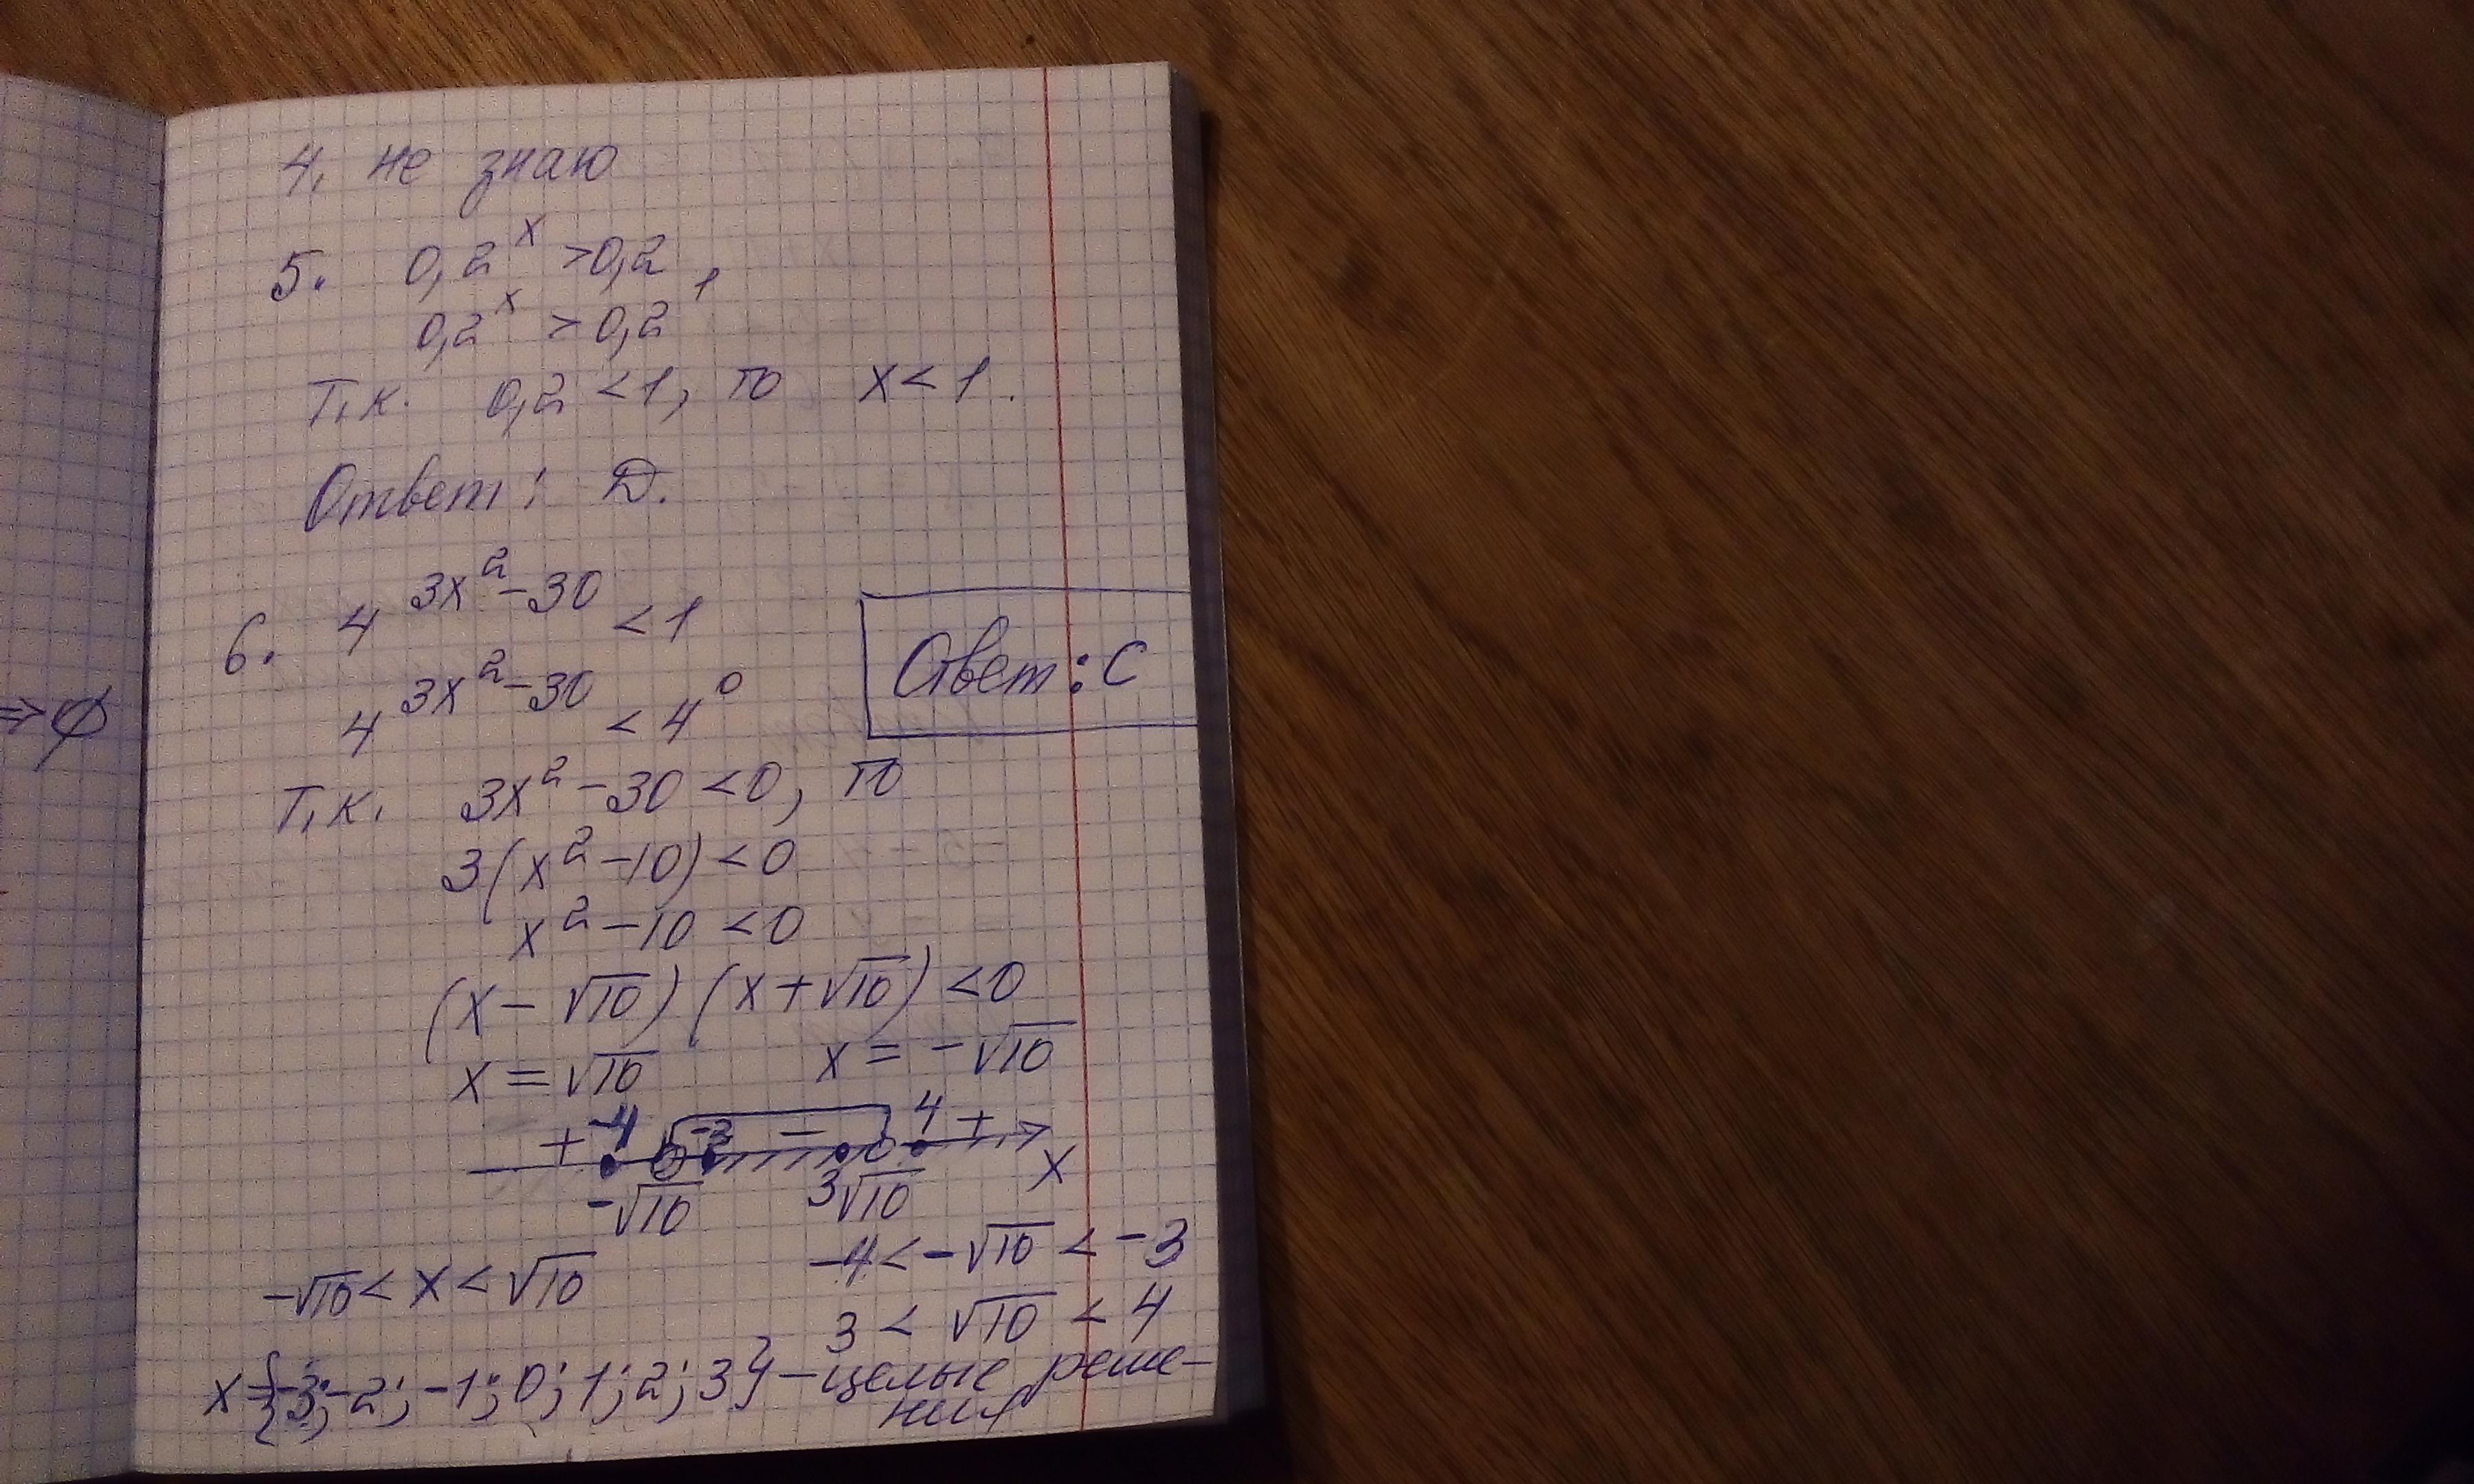 4. не знаю
5. 0,2^x > 0,2
0,2^x > 0,2^1
Т.к. 0,2 < 1, то x < 1.
Ответ: D.
6. 4^(3x²-30) < 1
4^(3x²-30) < 4^0
Ответ: C
=> ∅
Т.к. 3x² - 30 < 0, то
3(x² - 10) < 0
x² - 10 < 0
(x - √10)(x + √10) < 0
x = √10 x = -√10
+ -4 -3 - 4 +
-√10 3 √10 x
-4 < -√10 < -3
-√10 < x < √10
3 < √10 < 4
x = {-3; -2; -1; 0; 1; 2; 3} - целые реше-
ния